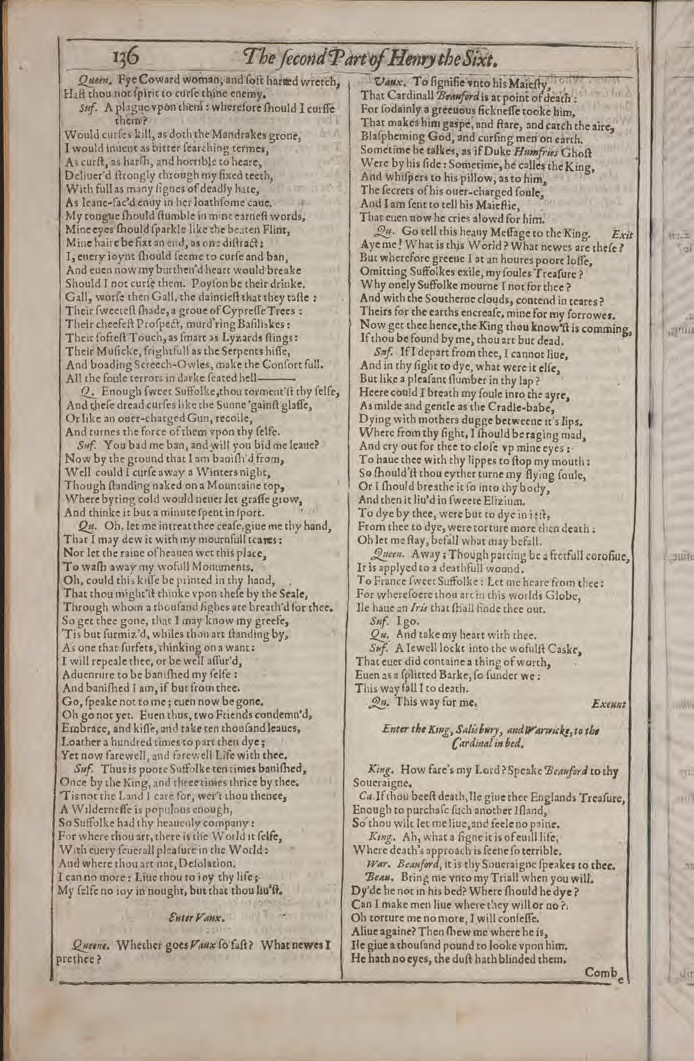 136 The ſecond Part of Henry the Sixt.
Queen. Fye Coward woman, and ſoft harted wretch,
Haſt thou not ſpirit to curſe thine enemy.
Suf. A plague vpon them: wherefore ſhould I curſſe
them?
Would curſes kill, as doth the Mandrakes grone,
I would inuent as bitter ſearching termes,
As curſt, as harſh, and horrible to heare,
Deliuer'd ſtrongly through my fixed teeth,
With full as many ſignes of deadly hate,
As leane-fac'd enuy in her loathſome caue.
My tongue ſhould ſtumble in mine earneſt words,
Mine eyes ſhould ſparkle like the beaten Flint,
Mine haire be fixt an end, as one diſtract:
I, euery ioynt ſhould ſeeme to curſe and ban,
And euen now my burthen'd heart would breake
Should I not curſe them. Poyſon be their drinke.
Gall, worſe then Gall, the daintieſt that they taſte:
Their ſweeteſt ſhade, a groue of Cypreſſe Trees:
Their cheefeſt Proſpect, murd'ring Baſiliskes:
Their ſofteſt Touch, as ſmart as Lyzards ſtings:
Their Muſicke, frightfull as the Serpents hiſſe,
And boading Screech-Owles, make the Conſort full.
All the foule terrors in darke ſeated hell———
Q. Enough ſweet Suffolke, thou torment'ſt thy ſelfe,
And theſe dread curſes like the Sunne 'gainſt glaſſe,
Or like an ouer-charged Gun, recoile,
And turnes the force of them vpon thy ſelfe.
Suf. You bad me ban, and will you bid me leaue?
Now by the ground that I am baniſh'd from,
Well could I curſe away a Winters night,
Though ſtanding naked on a Mountaine top,
Where byting cold would neuer let graſſe grow,
And thinke it but a minute ſpent in ſport.
Qu. Oh, let me intreat thee ceaſe, giue me thy hand,
That I may dew it with my mournfull teares:
Nor let the raine of heauen wet this place,
To waſh away my wofull Monuments.
Oh, could this kiſſe be printed in thy hand,
That thou might'ſt thinke vpon theſe by the Seale,
Through whom a thouſand ſighes are breath'd for thee.
So get thee gone, that I may know my greefe,
'Tis but ſurmiz'd, whiles thou art ſtanding by,
As one that ſurfets, thinking on a want:
I will repeale thee, or be well aſſur'd,
Aduenture to be baniſhed my ſelfe:
And baniſhed I am, if but from thee.
Go, ſpeake not to me; euen now be gone.
Oh go not yet. Euen thus, two Friends condemn'd,
Embrace, and kiſſe, and take ten thouſand leaues,
Loather a hundred times to part then dye;
Yet now farewell, and farewell Life with thee.
Suf. Thus is poore Suffolke ten times baniſhed,
Once by the King, and three times thrice by thee.
'Tis not the Land I care for, wer't thou thence,
A Wilderneſſe is populous enough,
So Suffolke had thy heauenly company:
For where thou art, there is the World it ſelfe,
With euery ſeuerall pleaſure in the World:
And where thou art not, Deſolation.
I can no more: Liue thou to ioy thy life;
My ſelfe no ioy in nought, but that thou liu'ſt.
Enter Vaux.
Queene. Whether goes Vaux ſo faſt? What newes I
prethee?
Vaux. To ſignifie vnto his Maieſty,
That Cardinall Beauford is at point of death:
For ſodainly a greeuous ſickneſſe tooke him,
That makes him gaſpe, and ſtare, and catch the aire,
Blaſpheming God, and curſing men on earth.
Sometime he talkes, as if Duke Humfries Ghoſt
Were by his ſide: Sometime, he calles the King,
And whiſpers to his pillow, as to him,
The ſecrets of his ouer-charged ſoule,
And I am ſent to tell his Maieſtie,
That euen now he cries alowd for him.
Qu. Go tell this heauy Meſſage to the King. Exit
Aye me! What is this World? What newes are theſe?
But wherefore greeue I at an houres poore loſſe,
Omitting Suffolkes exile, my ſoules Treaſure?
Why onely Suffolke mourne I not for thee?
And with the Southerne clouds, contend in teares?
Theirs for the earths encreaſe, mine for my ſorrowes.
Now get thee hence, the King thou know'ſt is comming,
If thou be found by me, thou art but dead.
Suf. If I depart from thee, I cannot liue,
And in thy ſight to dye, what were it elſe,
But like a pleaſant ſlumber in thy lap?
Heere could I breath my ſoule into the ayre,
As milde and gentle as the Cradle-babe,
Dying with mothers dugge betweene it's lips.
Where from thy ſight, I ſhould be raging mad,
And cry out for thee to cloſe vp mine eyes:
To haue thee with thy lippes to ſtop my mouth:
So ſhould'ſt thou eyther turne my flying ſoule,
Or I ſhould breathe it ſo into thy body,
And then it liu'd in ſweete Elizium.
To dye by thee, were but to dye in ieſt,
From thee to dye, were torture more then death:
Oh let me ſtay, befall what may befall.
Queen. Away: Though parting be a fretfull coroſiue,
It is applyed to a deathfull wound.
To France ſweet Suffolke: Let me heare from thee:
For whereſoere thou art in this worlds Globe,
Ile haue an Iris that ſhall finde thee out.
Suf. I go.
Qu. And take my heart with thee.
Suf. A Iewell lockt into the wofulſt Caske,
That euer did containe a thing of worth,
Euen as a ſplitted Barke, ſo ſunder we:
This way fall I to death.
Qu. This way for me. Exeunt
Enter the King, Salisbury, and Warwicke, to the
Cardinal in bed.
King. How fare's my Lord? Speake Beauford to thy
Soueraigne.
Ca. If thou beeſt death, Ile giue thee Englands Treaſure,
Enough to purchaſe ſuch another Iſland,
So thou wilt let me liue, and feele no paine.
King. Ah, what a ſigne it is of euill life,
Where death's approach is ſeene ſo terrible.
War. Beauford, it is thy Soueraigne ſpeakes to thee.
Beau. Bring me vnto my Triall when you will.
Dy'de he not in his bed? Where ſhould he dye?
Can I make men liue where they will or no?
Oh torture me no more, I will confeſſe.
Aliue againe? Then ſhew me where he is,
Ile giue a thouſand pound to looke vpon him.
He hath no eyes, the duſt hath blinded them.
Comb